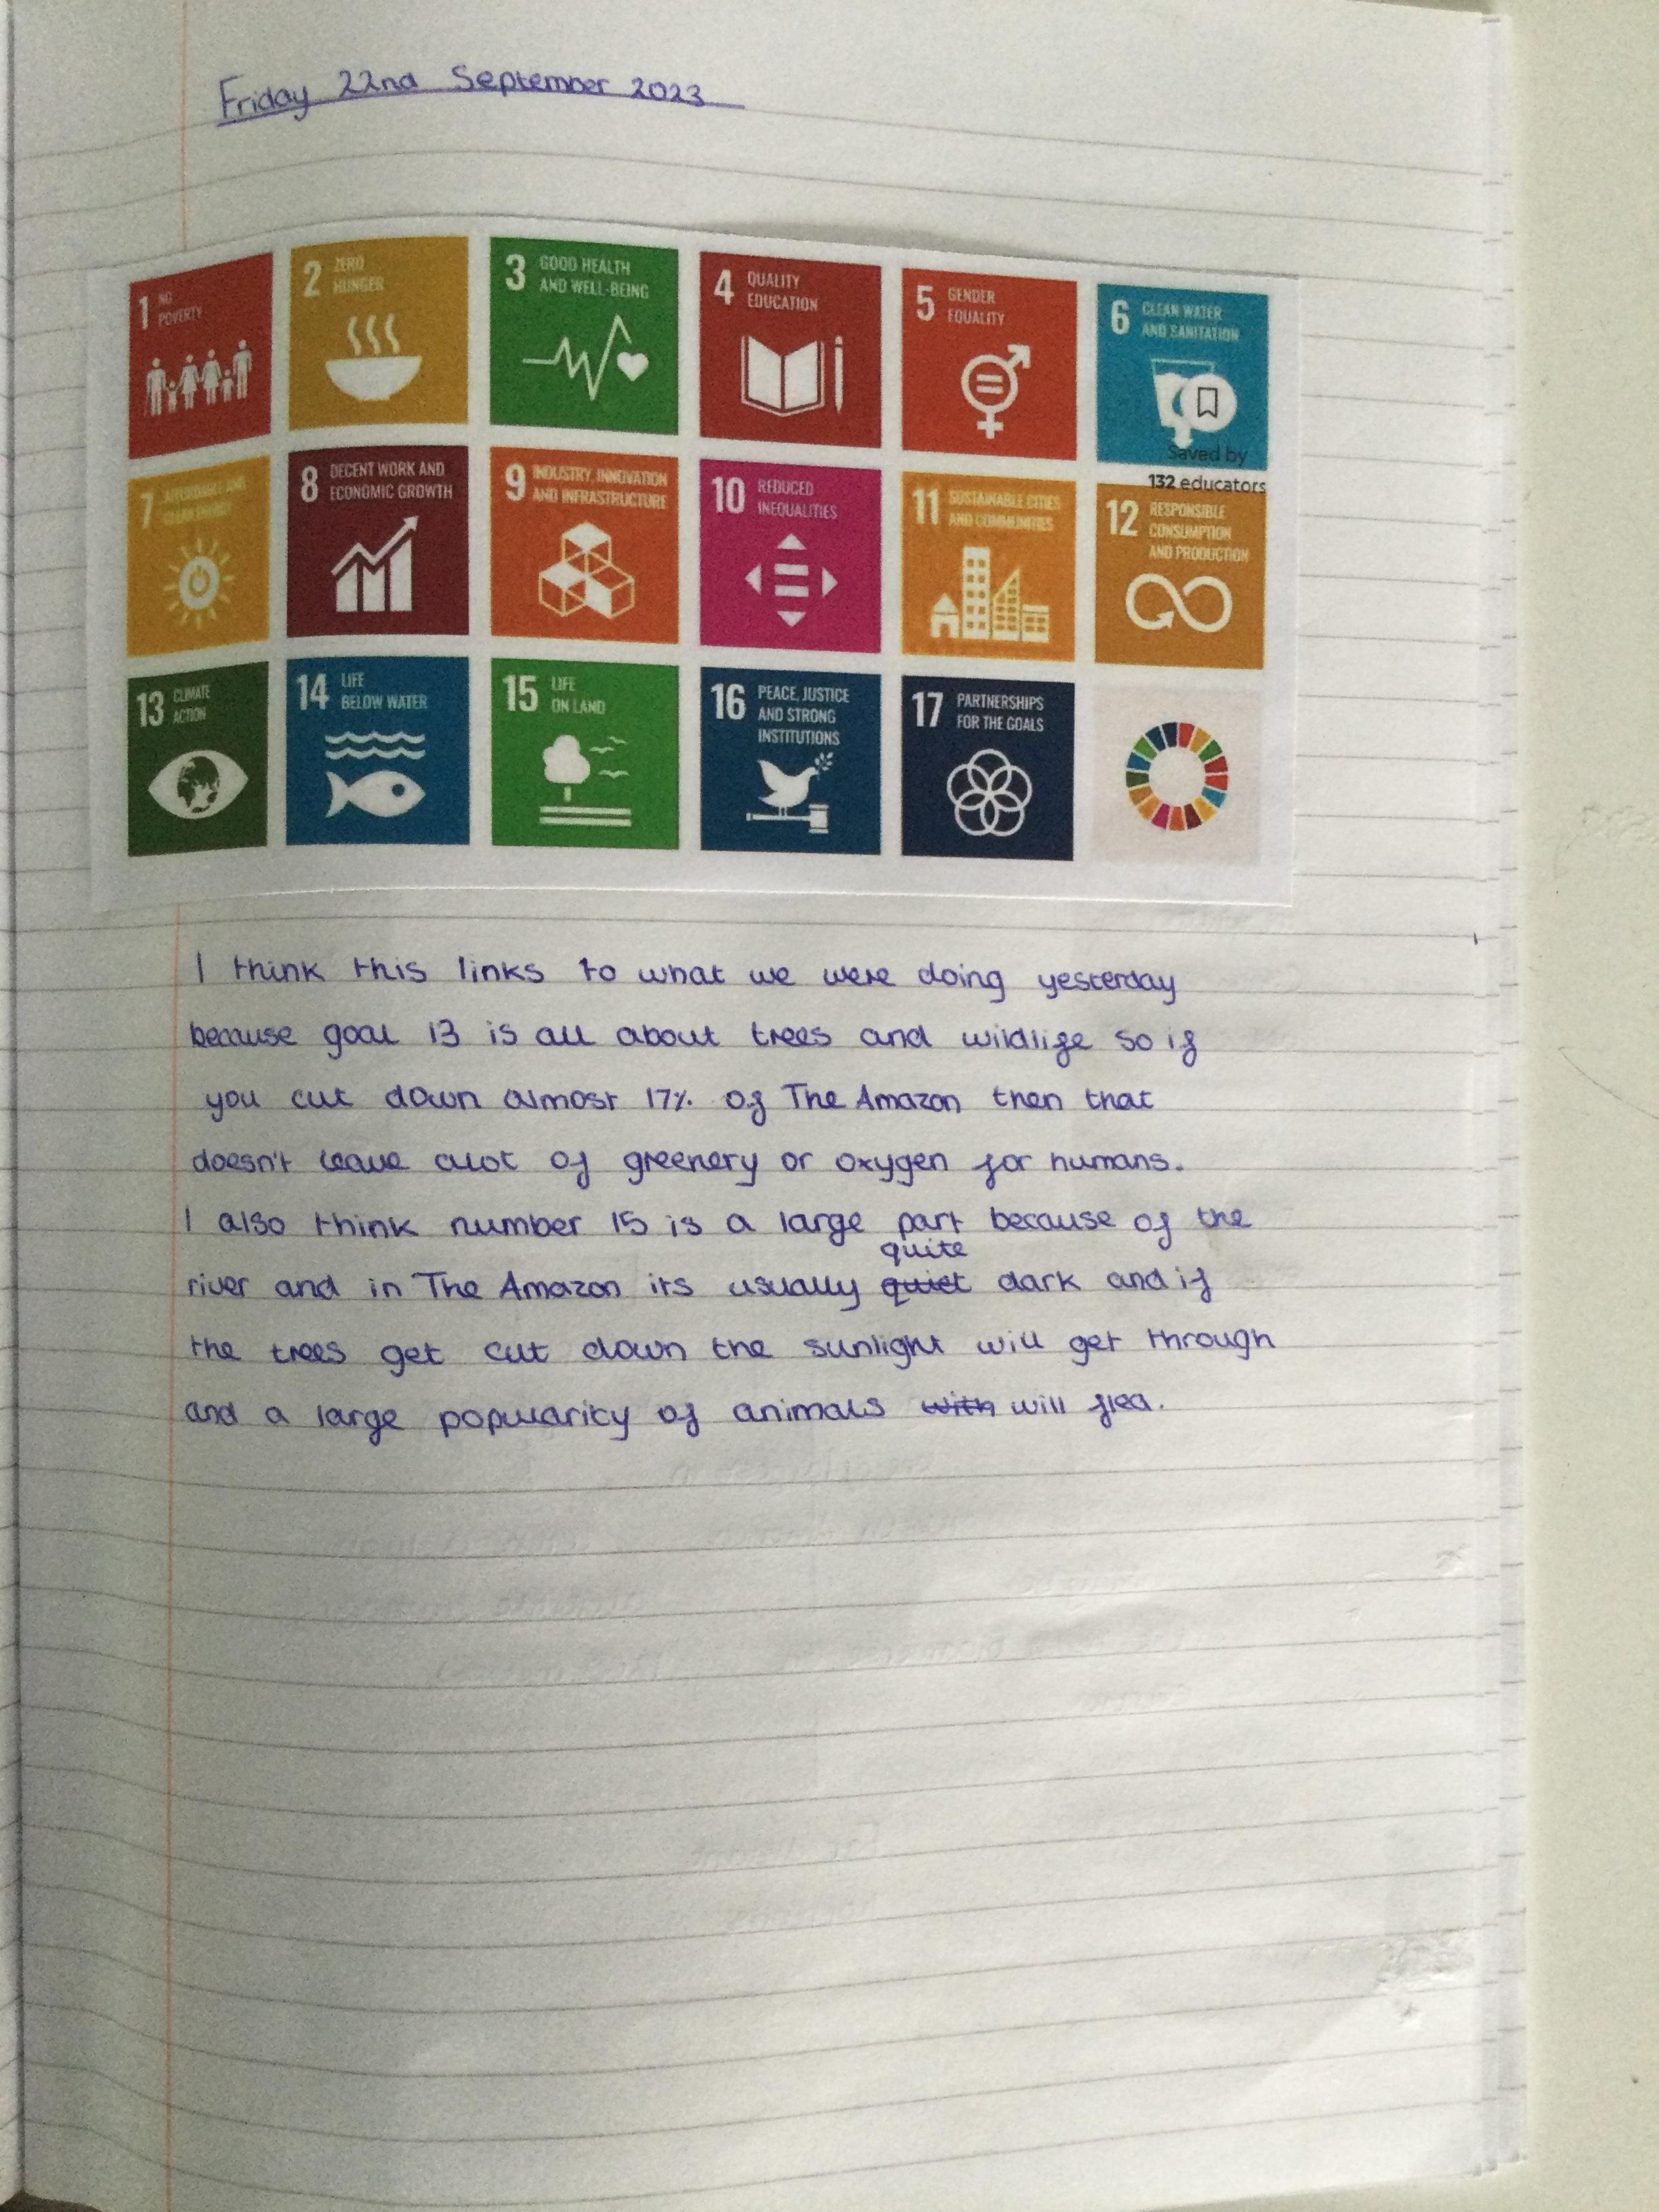 Friday 22nd September 2023
1 NO POVERTY
2 ZERO HUNGER
3 GOOD HEALTH AND WELL-BEING
4 QUALITY EDUCATION
5 GENDER EQUALITY
6 CLEAN WATER AND SANITATION
Saved by
132 educators
7 AFFORDABLE AND CLEAN ENERGY
8 DECENT WORK AND ECONOMIC GROWTH
9 INDUSTRY, INNOVATION AND INFRASTRUCTURE
10 REDUCED INEQUALITIES
11 SUSTAINABLE CITIES AND COMMUNITIES
12 RESPONSIBLE CONSUMPTION AND PRODUCTION
13 CLIMATE ACTION
14 LIFE BELOW WATER
15 LIFE ON LAND
16 PEACE, JUSTICE AND STRONG INSTITUTIONS
17 PARTNERSHIPS FOR THE GOALS
I think this links to what we were doing yesterday
because goal 13 is all about trees and wildlife so if
you cut down almost 17% of The Amazon then that
doesn't leave alot of greenery or oxygen for humans.
I also think number 15 is a large part because of the
quite
river and in The Amazon its usually quiet dark and if
the trees get cut down the sunlight will get through
and a large popularity of animals with will flea.